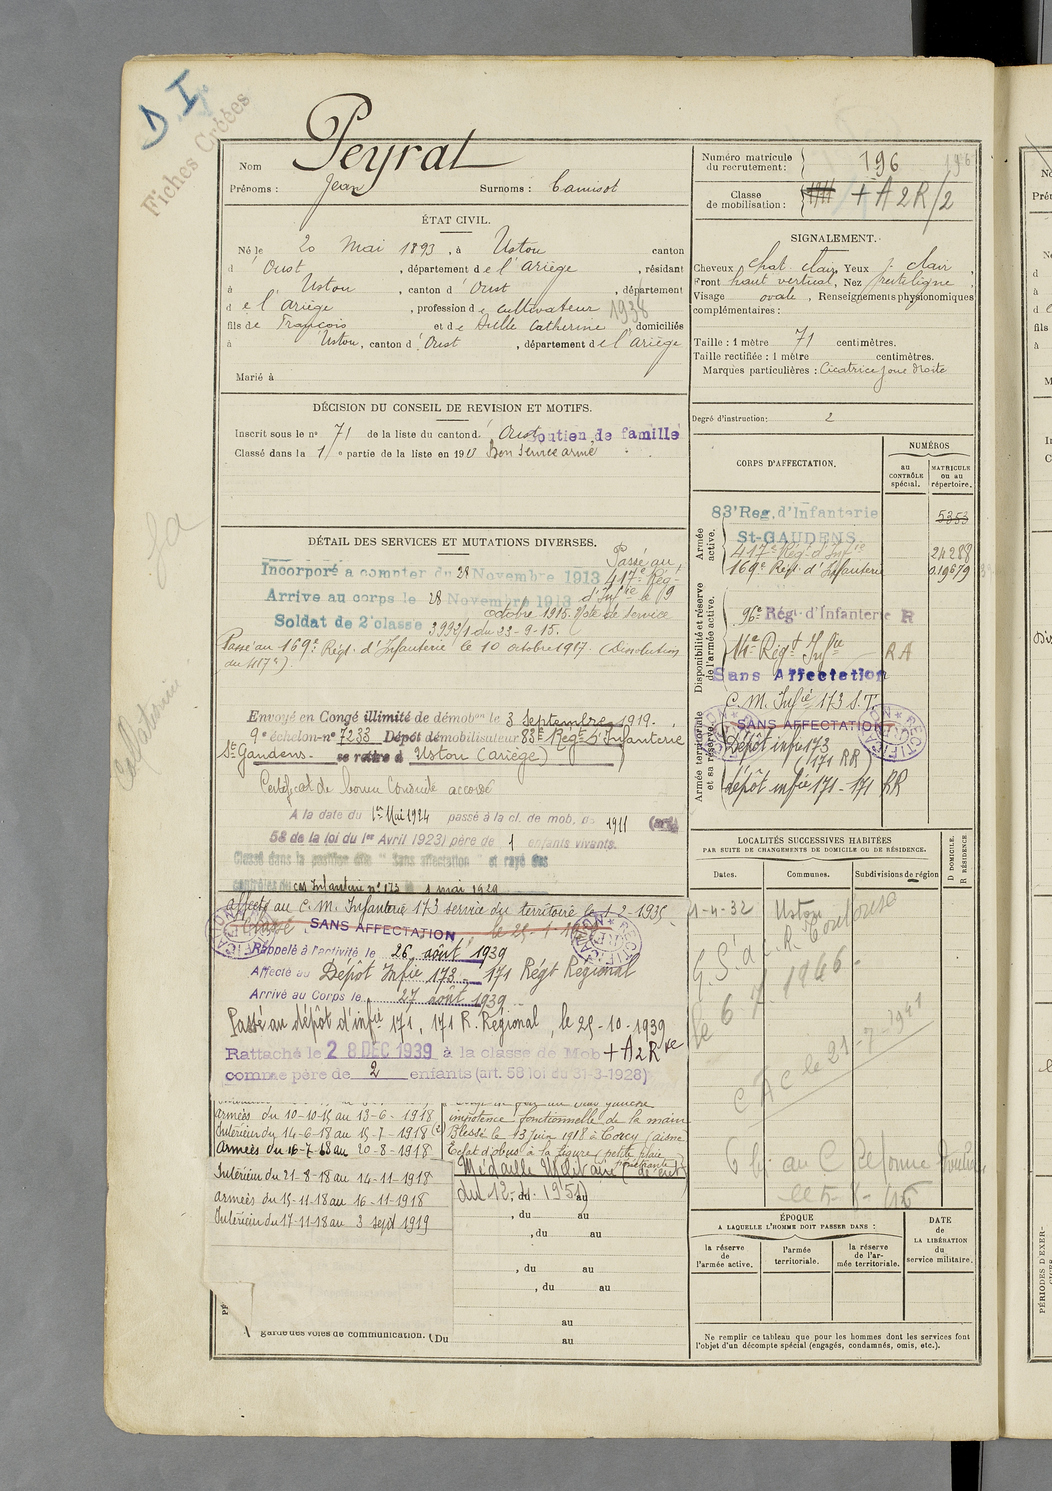 D I.
Fiches Créées
Nom Peyrat
Prénoms : Jean Surnoms : Camisot
Numéro matricule du recrutement : 196
196
Classe de mobilisation : 1911 + A 2 R/2
ÉTAT CIVIL.
Né le 20 Mai 1893, à Ustou canton
d'Oust, département de l'Ariège, résidant
à Ustou, canton d'Oust, département
de l'Ariège, profession de cultivateur
1938
fils de François et de Catherine, domiciliés
à Ustou, canton d'Oust, département de l'Ariège
Marié à
SIGNALEMENT.
Cheveux chat. clair, Yeux clair,
Front haut vertical, Nez rectiligne,
Visage ovale, Renseignements physionomiques
complémentaires :
Taille : 1 mètre 71 centimètres.
Taille rectifiée : 1 mètre centimètres.
Marques particulières : Cicatrice joue droite
Degré d'instruction : 2
DÉCISION DU CONSEIL DE REVISION ET MOTIFS.
Inscrit sous le n° 71 de la liste du canton d'Oust Soutien de famille
Classé dans la 1re partie de la liste en 1913 Bon service armé
CORPS D'AFFECTATION.
NUMÉROS
au CONTRÔLE spécial.
MATRICULE ou au répertoire.
Armée active.
83e Rég. d'Infanterie 5353
St-GAUDENS
417e Régt d'Infie 24288
169e Régt d'Infanterie 019679
Disponibilité et réserve de l'armée active.
96e Régt d'Infanterie R
14e Régt Infie RA
Sans Affectation
Armée territoriale et sa réserve.
C. M. Infie 173 S.T.
SANS AFFECTATION
RECTIFICATION
Dépôt infie 173
171 RR
dépôt infie 171 - 171 RR
DÉTAIL DES SERVICES ET MUTATIONS DIVERSES.
Incorporé à compter du 28 Novembre 1913
Arrivé au corps le 28 Novembre 1913
Soldat de 2e classe
Passé au
417e Rég-
d'Infie le 19
octobre 1915. Note de service
3992/1 du 23-9-15.
Passé au 169e Régt. d'Infanterie le 10 octobre 1917. (Dissolution
du 417e)
Envoyé en Congé illimité de démobon le 3 Septembre 1919.
9e échelon n° 7233 Dépôt démobilisateur 83e Régt d'Infanterie
St Gaudens. se retire à Ustou (Ariège)
Certificat de bonne Conduite accordé
A la date du 1er Mai 1924 passé à la cl. de mob. de 1911 (art.
58 de la loi du 1er Avril 1923) père de 1 enfants vivants.
Classé dans la position dite "Sans affectation" et rayé des
contrôles du Infanterie n° 173 1 mai 1929
affecté au C. M. Infanterie 173 service du territoire le 1-2-1935
Classé SANS AFFECTATION
RECTIFICATION
Rappelé à l'activité le 26 août 1939
Affecté au Dépôt Infie 173 - 171 Régt Régional
Arrivé au Corps le 27 août 1939
Passé au dépôt d'infie 171, 171 R. Régional, le 25-10-1939
Rattaché le 28 DEC 1939 à la classe de Mob + A 2 R
comme père de 2 enfants (art. 58 loi du 31-3-1928)
LOCALITÉS SUCCESSIVES HABITÉES
PAR SUITE DE CHANGEMENTS DE DOMICILE OU DE RÉSIDENCE.
D DOMICILE.
R RÉSIDENCE
Dates. Communes. Subdivisions de région
1-4-32 Ustou
G.S. à C.R. Toulouse
le 6 7 1946
C A C le 21-7-1941
armées du 10-10-15 au 13-6-1918
Intérieur du 14-6-18 au 15-7-1918
armées du 16-7-18 au 20-8-1918
Intérieur du 21-8-18 au 14-11-1918
armées du 15-11-18 au 16-11-1918
Intérieur du 17-11-18 au 3 sept 1919
impotence fonctionnelle de la main
Blessé le 13 juin 1918 à Corcy (aisne
Eclat d'obus à la figure (petite plaie
pénétrante)
Médaille Militaire
du 12. 1951)
, du au
, du au
, du au
, du au
au
garde des voies de communication. (Du au
ÉPOQUE
A LAQUELLE L'HOMME DOIT PASSER DANS :
la réserve de l'armée active.
l'armée territoriale.
la réserve de l'armée territoriale.
DATE de LA LIBÉRATION du service militaire.
Ne remplir ce tableau que pour les hommes dont les services font
l'objet d'un décompte spécial (engagés, condamnés, omis, etc.).